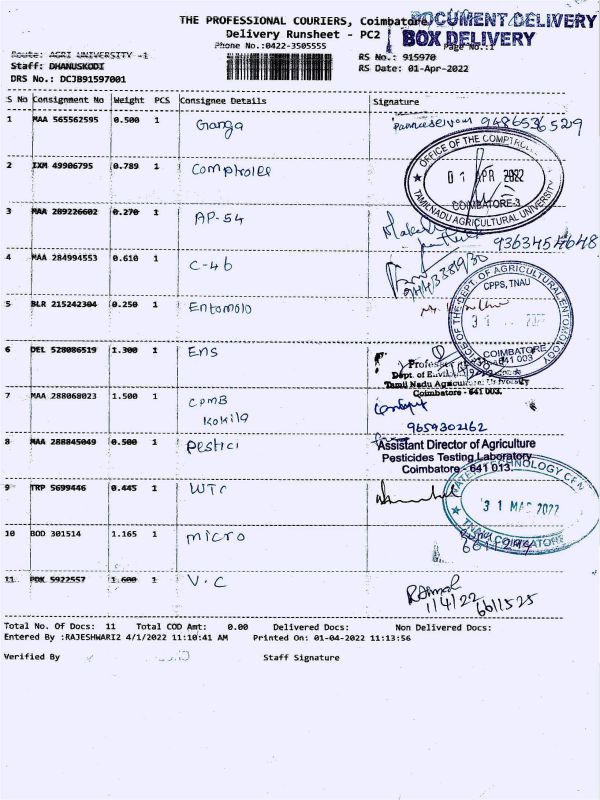 THE PROFESSIONAL COURIERS, Coimbatore
DOCUMENT DELIVERY
Delivery Runsheet - PC2
BOX DELIVERY
Phone No.:0422-3505555
Page No.:1
Route: AGRI UNIVERSITY -1
RS No.: 915970
Staff: DHANUSKODI
RS Date: 01-Apr-2022
DRS No.: DCJB91597001
S No Consignment No Weight PCS Consignee Details Signature
1 MAA 565562595 0.500 1 Ganga 9486536529
2 IXM 49906795 0.789 1 Comptroller
OFFICE OF THE COMPTROLLER
01 APR 2022
COIMBATORE-3
TAMILNADU AGRICULTURAL UNIVERSITY
3 MAA 289226602 0.270 1 AP-54
9363454648
4 MAA 284994553 0.610 1 C-46
9444338930
5 BLR 215242304 0.250 1 Entomolo
DEPT. OF AGRICULTURAL ENTOMOLOGY
CPPS, TNAU
COIMBATORE
641 003
6 DEL 528086519 1.300 1 Ens
Professor
Dept. of
Tamil Nadu Agricultural University
Coimbatore - 641 003.
7 MAA 288068023 1.500 1 CPMB
Kokila
9659302162
8 MAA 288845049 0.500 1 Pestici
Assistant Director of Agriculture
Pesticides Testing Laboratory
Coimbatore - 641 013.
9 TRP 5699446 0.445 1 WTC
WATER TECHNOLOGY CEN
31 MAR 2022
TNAU COIMBATORE
10 BOD 301514 1.165 1 micro
11. PDK 5922557 1.600 1 V.C
1/4/22 6611525
Total No. Of Docs: 11 Total COD Amt: 0.00 Delivered Docs: Non Delivered Docs:
Entered By :RAJESHWARI2 4/1/2022 11:10:41 AM Printed On: 01-04-2022 11:13:56
Verified By Staff Signature